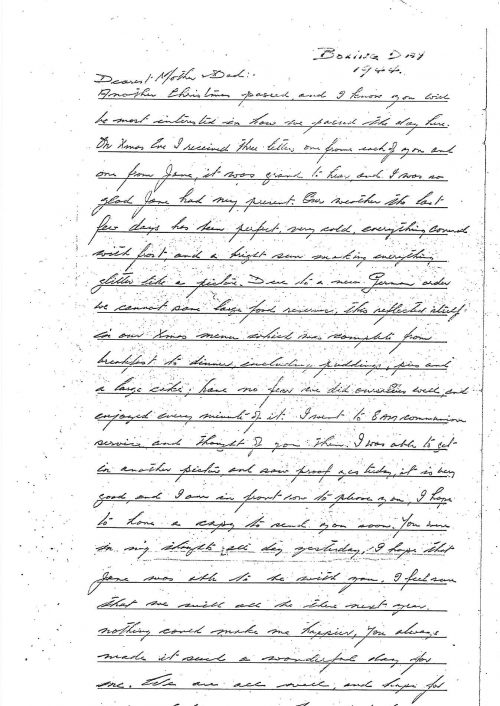 Boxing Day
1944.
Dearest Mother & Dad:-
Another Christmas passed and I know you will
be most interested in how we passed the day here.
On Xmas Eve I received three letters one from each of you and
one from Jane, it was grand to hear and I was so
glad Jane had my present. Our weather the last
few days has been perfect, very cold, everything covered
with frost and a bright sun making everything
glitter like a picture. Due to a new German order
we cannot save large food reserves, this reflected itself
in our Xmas menu which was complete from
breakfast to dinner, including puddings, pies and
a large cake; have no fear we did ourselves well, and
enjoyed every minute of it. I went to 8 AM communion
service and thought of you then. I was able to get
in another picture and saw proof yesterday, it is very
good and I am in front row to please you. I hope
to have a copy to send you soon. You were
in my thoughts all day yesterday. I hope that
Jane was able to be with you. I feel sure
that we will all be there next year,
nothing could make me happier, you always
made it such a wonderful day for
me. We are all well, and hope for